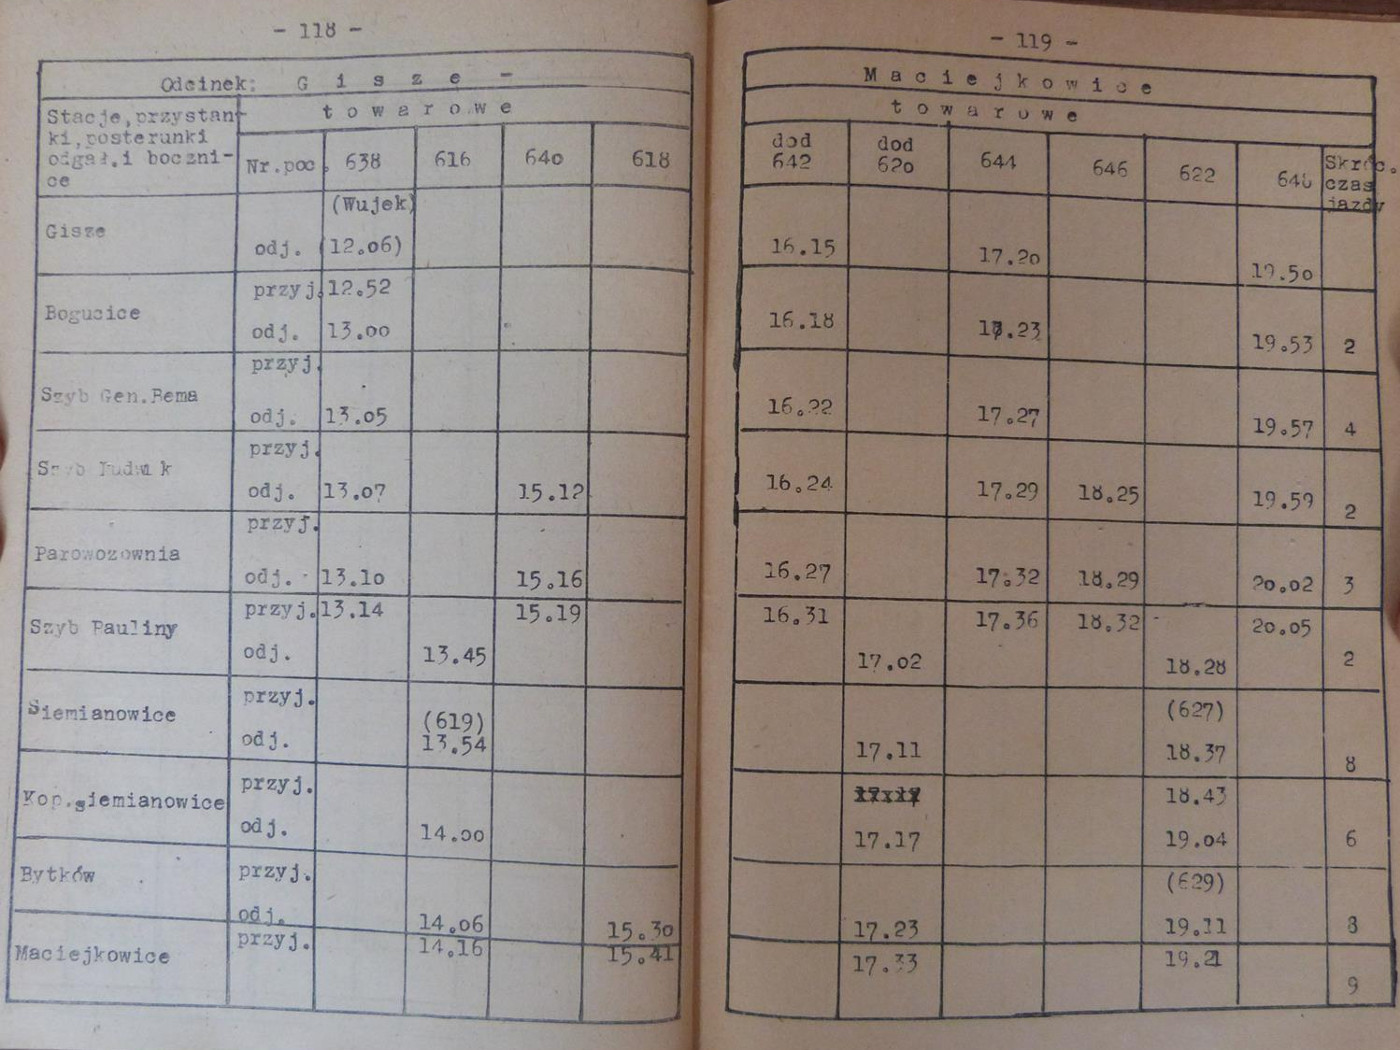 - 118 -
Odcinek: G i s z e -
Stacje,przystan-
ki,posterunki
odgał.i boczni-
ce
t o w a r o w e
Nr.poc. 638 616 640 618
Gisze
(Wujek)
odj. (12.06)
Bogucice
przyj. 12.52
odj. 13.00
Szyb Gen.Bema
przyj.
odj. 13.05
Szyb
przyj.
odj. 13.07 15.12
Parowozownia
przyj.
odj. 13.10 15.16
Szyb Pauliny
przyj. 13.14 15.19
odj. 13.45
Siemianowice
przyj.
(619)
odj. 13.54
Kop.Siemianowice
przyj.
odj. 14.00
Bytków
przyj.
odj. 14.06 15.30
Maciejkowice
przyj. 14.16 15.41
- 119 -
M a c i e j k o w i c e
t o w a r o w e
dod dod
642 620 644 646 622 648
Skróc.
czas
jazdy
16.15 17.20 19.50
16.18 17.23 19.53 2
16.22 17.27 19.57 4
16.24 17.29 18.25 19.59 2
16.27 17.32 18.29 20.02 3
16.31 17.36 18.32 20.05
17.02 18.28 2
(627)
17.11 18.37 8
18.43
17.17 19.04 6
(629)
17.23 19.11 8
17.33 19.21 9